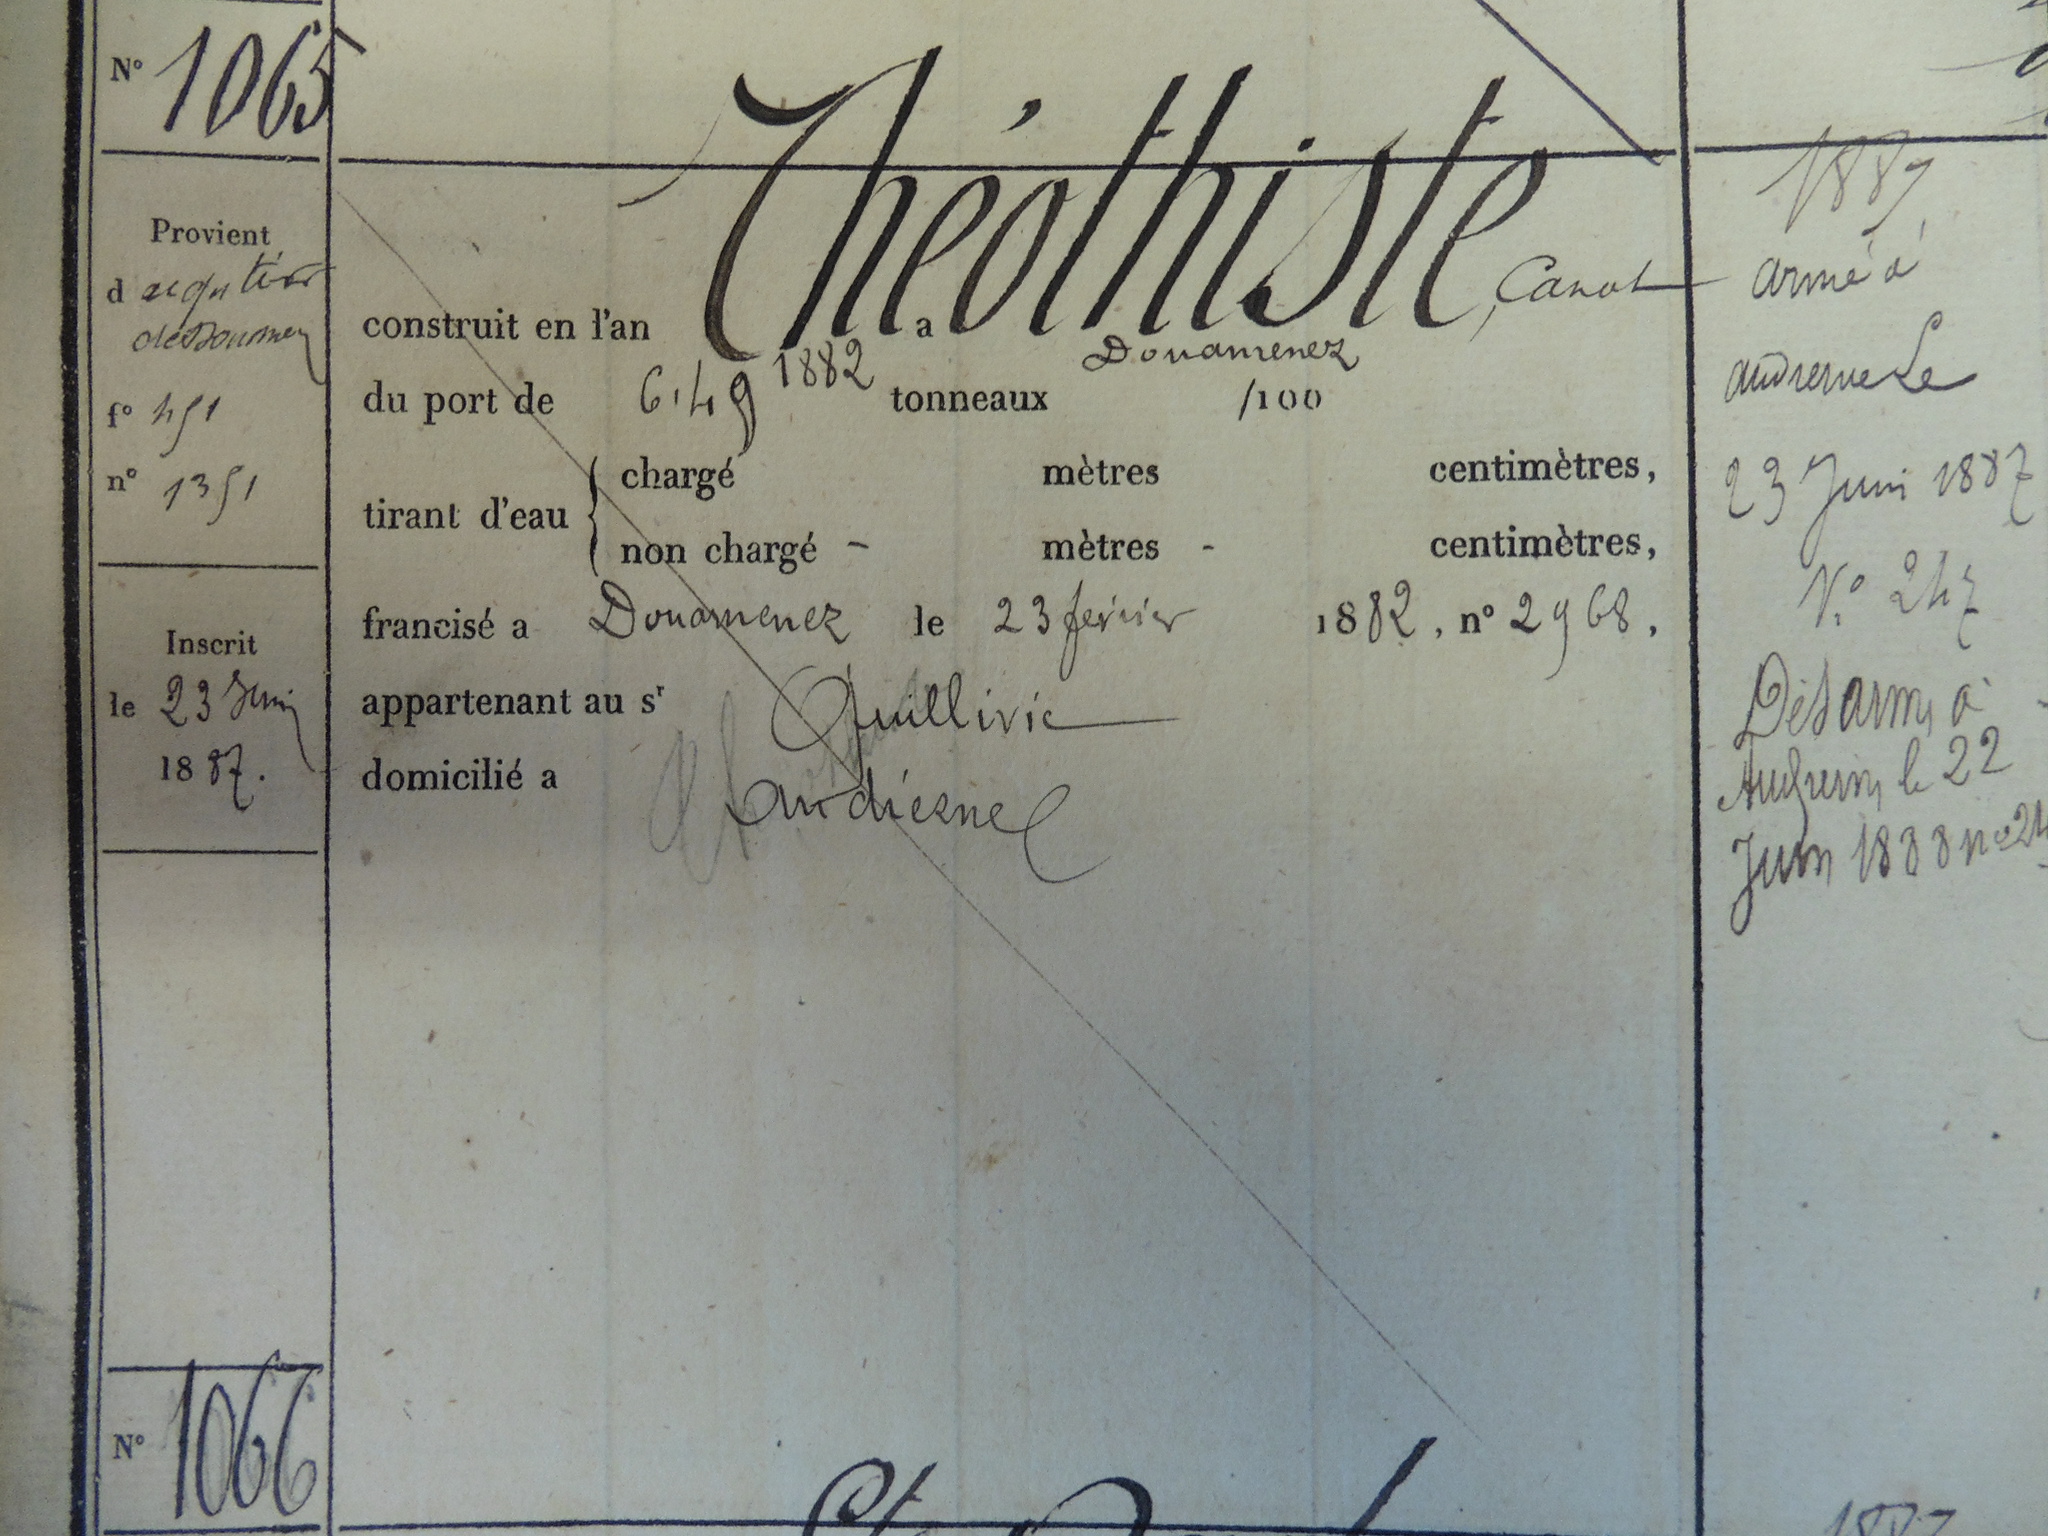 N° 1065
Provient
d
de Douarnez
f° 451
n° 1351
Inscrit
le 23 Juin
1887.
Théothiste, Canot
construit en l'an 1882 a Douarnenez
du port de 6.49 tonneaux /100
tirant d'eau { chargé mètres centimètres,
non chargé - mètres - centimètres,
francisé a Douarnenez le 23 fevrier 1882, n° 2968,
appartenant au sr Quillivic
domicilié a audierne
1887
armé à
audierne Le
23 Juin 1887
N° 247
Désarmé à
Audierne le 22
Juin 1888 n° 24
N° 1066
Ste
1887